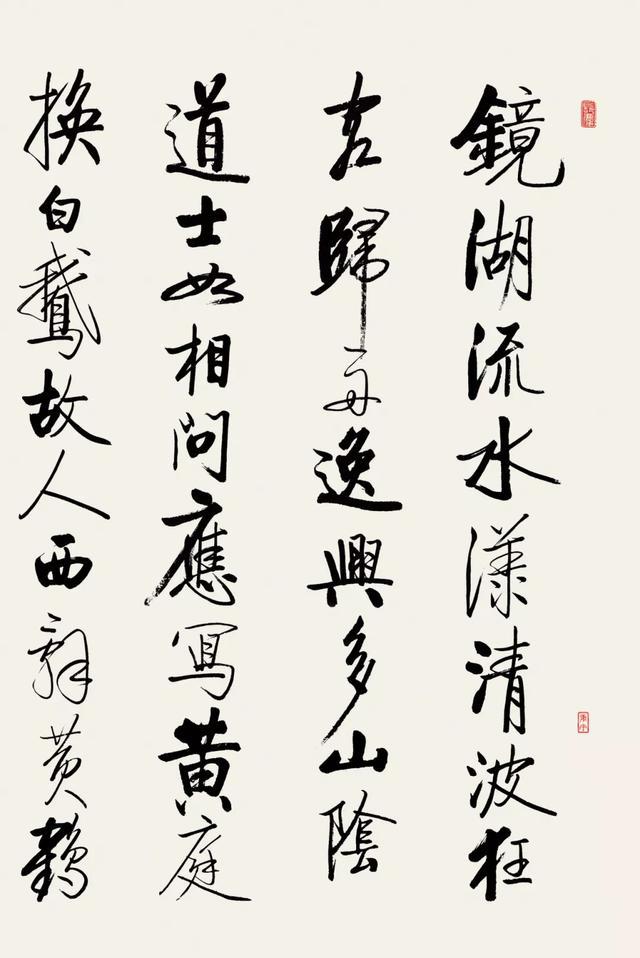 鏡湖流水漾清波狂
客歸舟逸興多山陰
道士如相問應寫黃庭
換白鵝故人西辭黃鶴